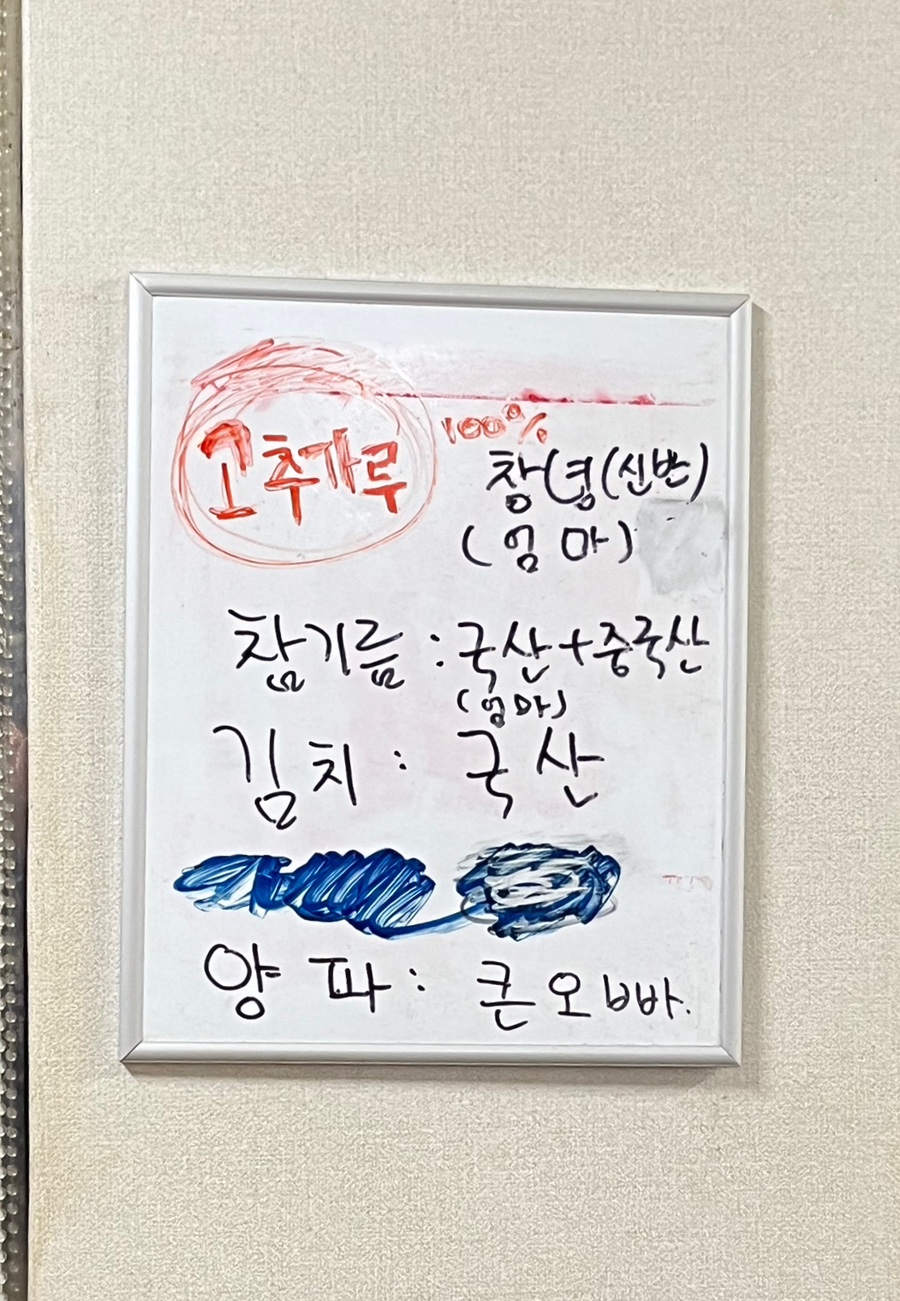 고추가루 100%
창녕(신반)
(엄마)
참기름 : 국산+중국산
(엄마)
김치 : 국산
양파 : 큰오빠.